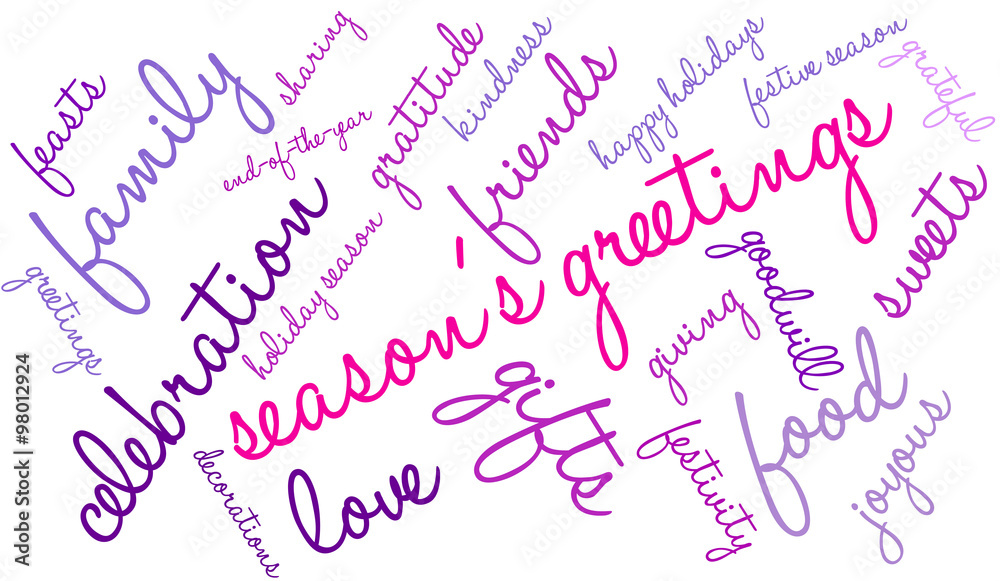 feasts
family
sharing
end-of-the-year
gratitude
kindness
friends
happy holidays
festive season
grateful
greetings
celebration
holiday season
season's greetings
sweets
goodwill
giving
food
gifts
love
decorations
festivity
joyous
Adobe Stock | #98012924